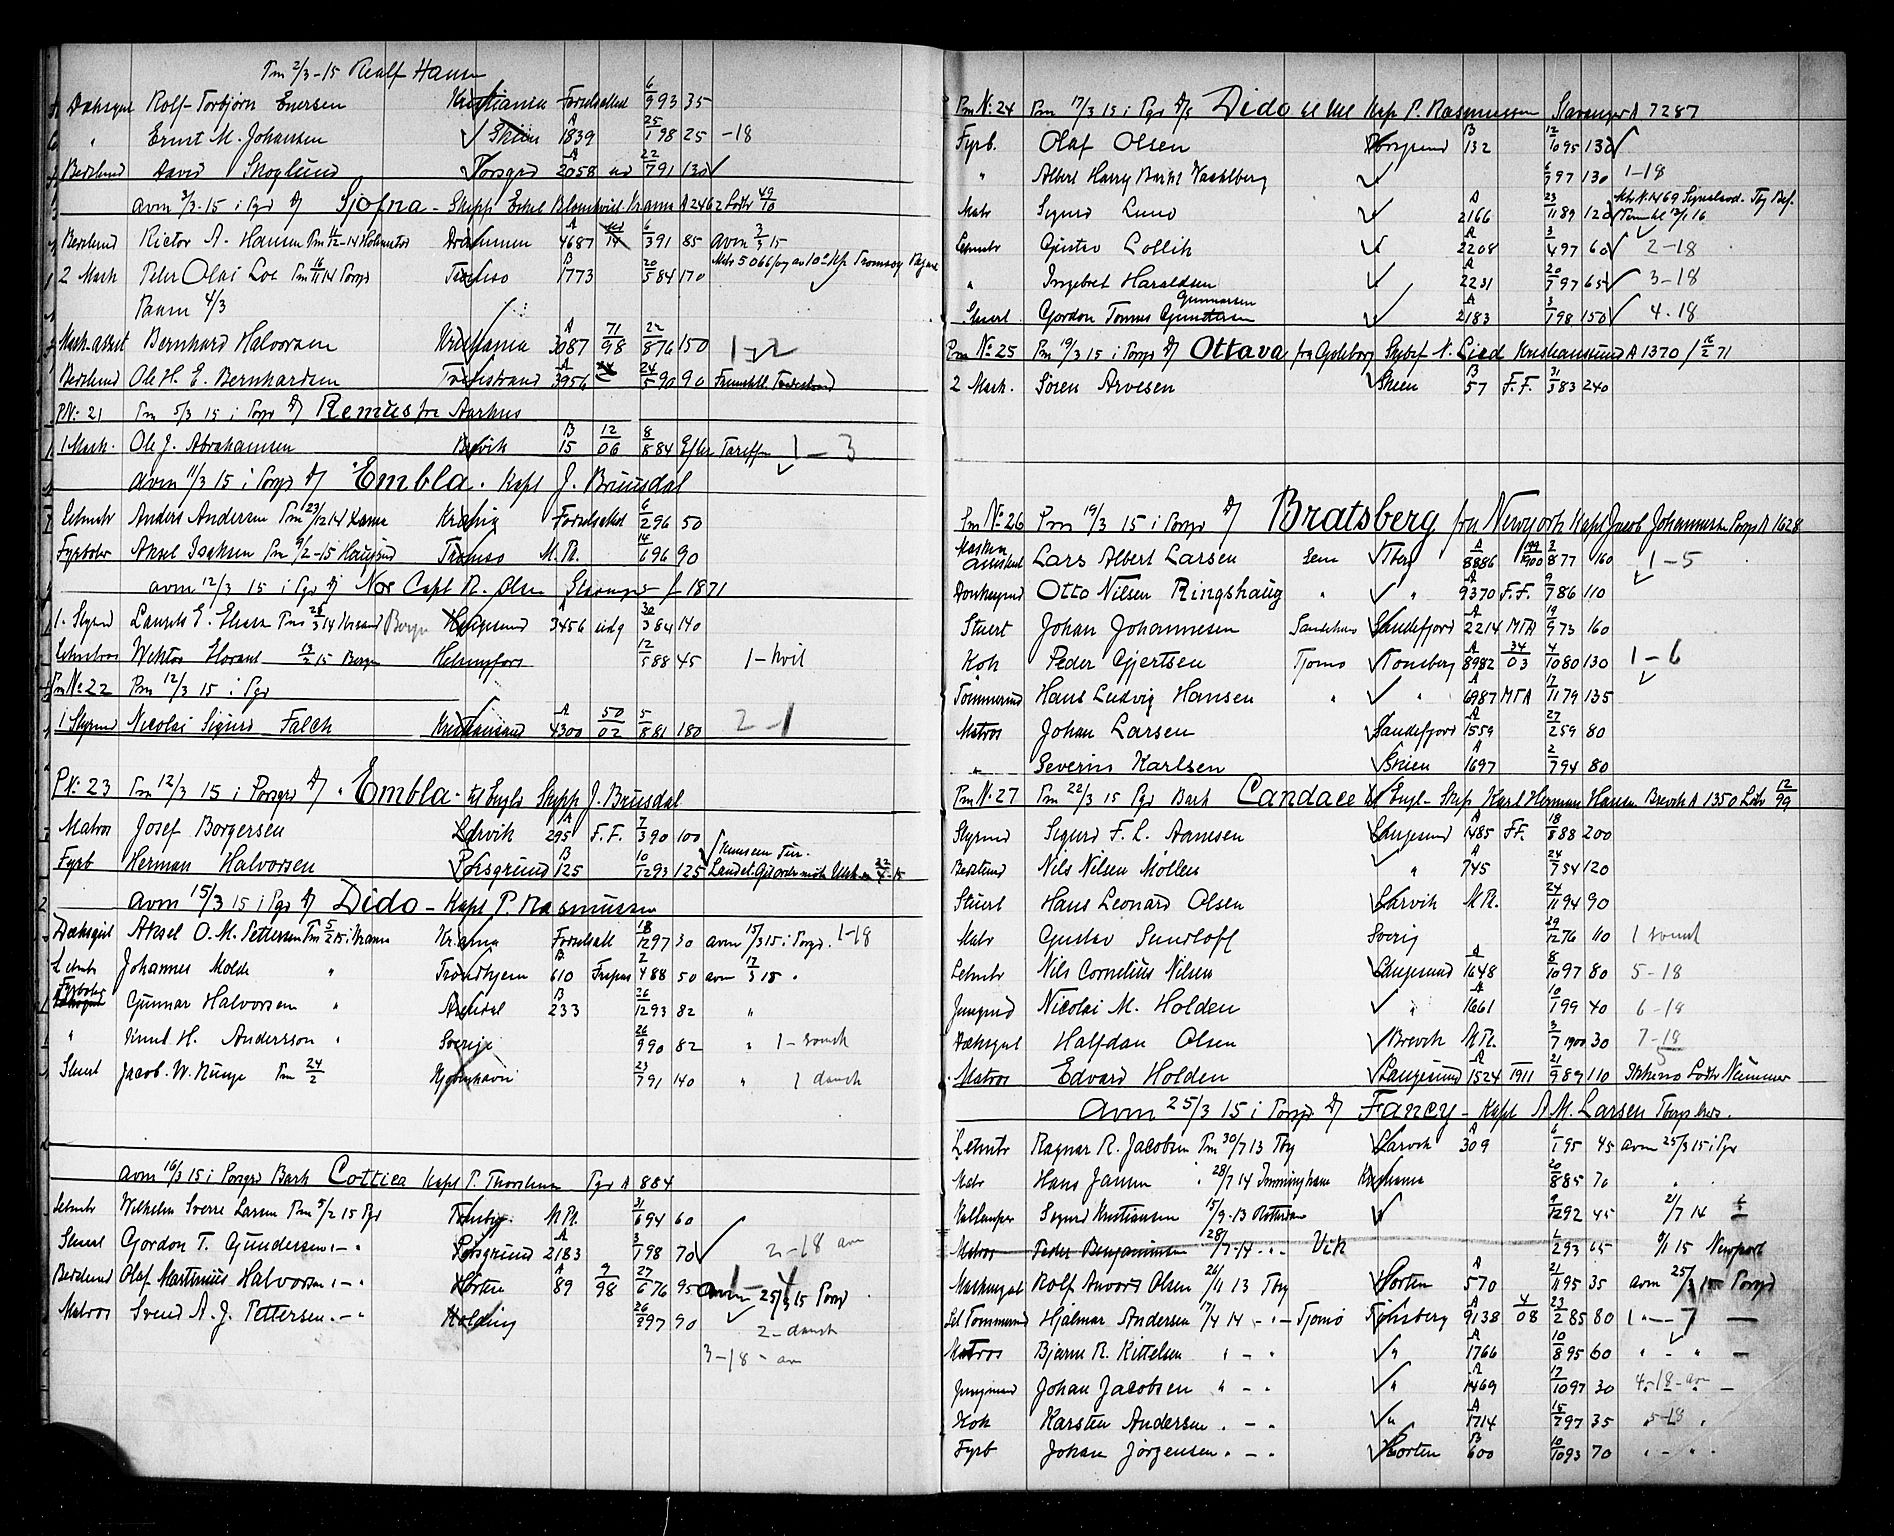 Pm 2/3-15 Realf Hansen
Dæksgut Rolf Torbjørn Enersen Kristiania Forselsattest 6/9 93 35
" Ernst M. Johansen Skien A 1839 25/1 98 25 -18
Bedstmd David Skoglund Porsgrd A 2058 22/7 91 130
avm 3/3-15 i Pgr D/S Sjofna - Skipp Eskel Blomkvist Krania A 2462 Lodtr 49/10
Bedstmd Rictor A. Hansen Pm 11/12-14 Holmestr Drammen A 4687 6/3 91 85 avm 3/3 15
2 Mask Peter Olai Loe Pm 16/11 14 Porsgr Tromsø B 1773 20/5 84 170
Paam 4/3
Mask.assist Bernhard Halvorsen Kristiania A 3087 71/98 22/8 76 150 1-2
Bedstmd Ole H. E. Bernhardsen Tvedestrand A 3956 24/5 90 90 Tvedestrand
PN: 21 Pm 5/3 15 i Porsgr D/S Remus fra Aarhus
1 Mask. Ole J. Abrahamsen Brevik B 15 12/06 8/8 84 Efter Tariffen 1-3
avm 11/3 15 i Porsgr D/S Embla. Kapt J. Bruusdal
Letmatr Anders Andersen Pm 23/12 14 Krania Forselsattest 6/2 96 50
Fyrbøter Aksel Isaksen Pm 9/2-15 Haugesund Tromsø M.R. 14/6 96 90
avm 12/3 15 i Pgr D/S Nor Capt R. Olsen Stavanger 1871
1. Styrmd Laurits E. Haugesund A 3456 30/3 84 140
Letmatros 13/2 15 Bergen Helsingfors 12/5 88 45 1-hvit
Pm No 22 Pm 12/3 15 i Pgr
1 Styrmd Nicolai Sigurd Falch Kristiansand A 4300 50/02 5/8 81 180 2-1
PN: 23 Pm 12/3 15 i Porsgrd D/S "Embla" til Engld Skipp J. Bruusdal
Matros Josef Borgersen Larvik A 295 F.F. 7/3 90 100
Fyrb Herman Halvorsen Porsgrund B 125 10/12 93 125
avm 15/3 15 i Pgr D/S Dido - Kapt P. Rasmussen
Dæksgut Aksel O. M. Pettersen Pm 5/2 15 i Krania Kr.ania Forselsatt 18/12 97 30 avm 15/3 15 i Porsgr. 1-18
Letmtr Johannes Molde " Trondhjem B 610 2/4 88 50 avm 17/3 15 "
Fyrbøter Gunnar Halvorsen " Arendal B 233 26/12 93 82 "
" Knut H. Andersson " Sverige 26/9 90 82 " 1-svensk
Stuert Jacob. W. Runge Pm 24/2 Kjøbenhavn 23/7 91 140 " 1 dansk
avm 16/3 15 i Porsgrd Bark Cottica Kapt P. Thorsen Pgr A 884
Letmtr Wilhelm Sverre Larsen Pm 5/2 15 Pgr Tønsbg. M.R. 31/6 94 60
Stuert Gordon T. Gundersen " - " Porsgrund A 2183 3/1 98 70 2-18 avm
Bedstmd Olaf Martinius Halvorsen " - " Horten A 89 9/98 27/6 76 95 avm 25/3 15 Porsgr 1-4
Matros Svend A. J. Pettersen. - " Kolding 26/2 97 90 2-dansk
3-18-avm
Pm No: 24 Pm 17/3 15 i Pgr D/S Dido til Kapt P. Rasmussen Stavanger A 7287
Fyrb. Olaf Olsen Porsgrund B 132 12/10 95 130
" Albert Harry Bernt Wasthlberg 6/7 97 130 1-18
Matr Sigurd Lund A 2166 23/11 89 120
Letmtr Gustav Lollik A 2208 3/4 97 60 2-18
" Ingebret Haraldsen A 2231 20/7 97 65 3-18
Stuert Gordon Tomas Gundersen Gunnarsen A 2183 3/1 98 150 4-18
Pm No 25 Pm 19/3 15 i Porsgr D/S Ottava fra Gøteborg Skibsf N. Lied Kristiansund A 1370 / 16/2 71
2 Mask. Søren Arvesen Skien B 57 F.F. 31/3 83 240
Pm No: 26 Pm 19/3 15 i Porsgr D/S Bratsberg fra Newyork Kapt Jacob Johannesen Porsgr A 1628
Maskin Assistent Lars Albert Larsen Sem Tberg A 8886 199/1900 3/8 77 160 1-5
Donkeymd Otto Nilsen Ringshaug " " A 9370 F.F. 9/7 86 110
Stuert Johan Johannesen Sandeherr Sandefjord A 2214 MTA 19/9 73 160
Kok Peder Gjertsen Tjømø Tønsberg A 8982 34/03 4/10 80 130 1-6
Tømmermd Hans Ludvig Hansen " " A 6987 MTA 17/11 79 135
Matros Johan Larsen Sandefjord A 1559 27/2 59 80
" Severin Karlsen Skien A 1697 2/7 94 80
Pm No: 27 Pm 22/3 15 Pgr Bark Candace til Engl- Skip Karl Herman Hansen Brevik A 1350 Lodtr 12/99
Styrmd Sigurd F. L. Arnesen Langesund A 1485 FF. 18/8 88 200
Bestmd Nils Nilsen Møllen " A 745 24/7 54 120
Stuert Hans Leonard Olsen Larvik M.R. 24/11 94 90
Matr Gustav Sundloff Sverig 29/12 76 110 1 svensk
Letmtr Nils Cornelius Nilsen Langesund A 1648 8/10 97 80 5-18
Jungmd Nicolai M. Holden " A 1661 10/1 99 40 6-18
Dæksgut Halfdan Olsen Brevik M.R. 3/7 1900 30 7-18
Matros Edvard Holden Langesund A 1524 1911 21/9 89 110 Lodtr Nummer
Avm 25/3 15 i Porsgr D/S Fancy - Kapt A. M. Larsen
Letmtr Ragnar R. Jacobsen Pm 30/7 13 Tbg Larvik A 309 6/1 95 45 avm 25/3 15 i Pgr
Matr Hans Jansen " 28/7 14 Immingham Kristiania 20/8 85 70 "
Kullemper Sigurd Kristiansen 15/9-13 Rotterdam 9/12 92 45 21/7 14
Matros Peder Benjaminsen 28/7-14 - " Vik 6/2 93 65 9/1 15 Newport
Maskingut Rolf Anvord Olsen 26/11 13 Tbg Horten A 570 21/11 95 35 avm 25/3 15 Porsgr
Tømmermd Hjalmar Andersen 17/4 14 - " - Tjømø Tønsberg A 9138 4/08 23/2 85 80 1 - 7
Matros Bjarne R. Kittelsen " - " " A 1766 10/8 95 60 " - "
Jungmand Johan Jacobsen " - " " A 1469 17/10 97 30 4-18-avm
Kok Karsten Andersen " - " " A 1714 15/7 97 35 5-18
Fyrb Johan Jørgensen " - " Horten B 600 10/10 93 70 " - "